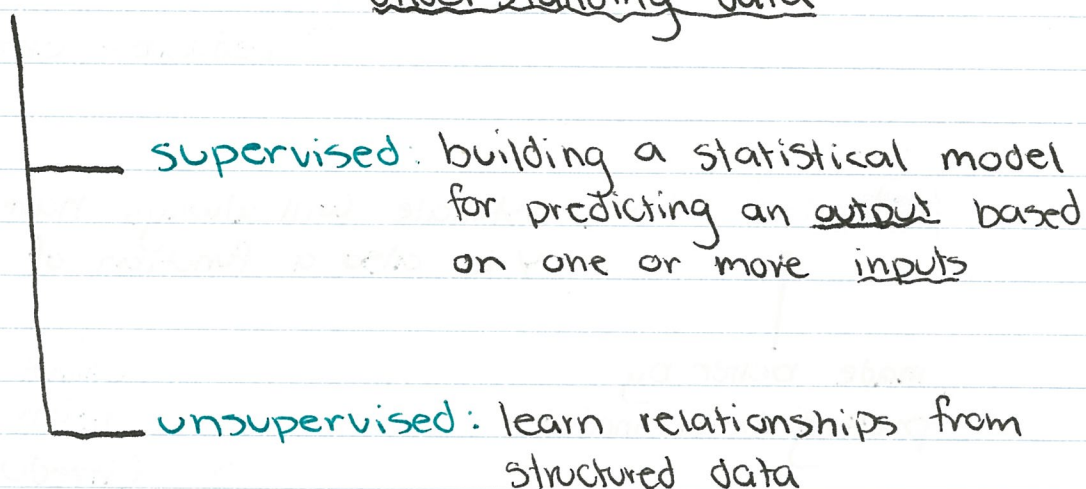 understanding data
supervised: building a statistical model
for predicting an output based
on one or more inputs
unsupervised: learn relationships from
structured data